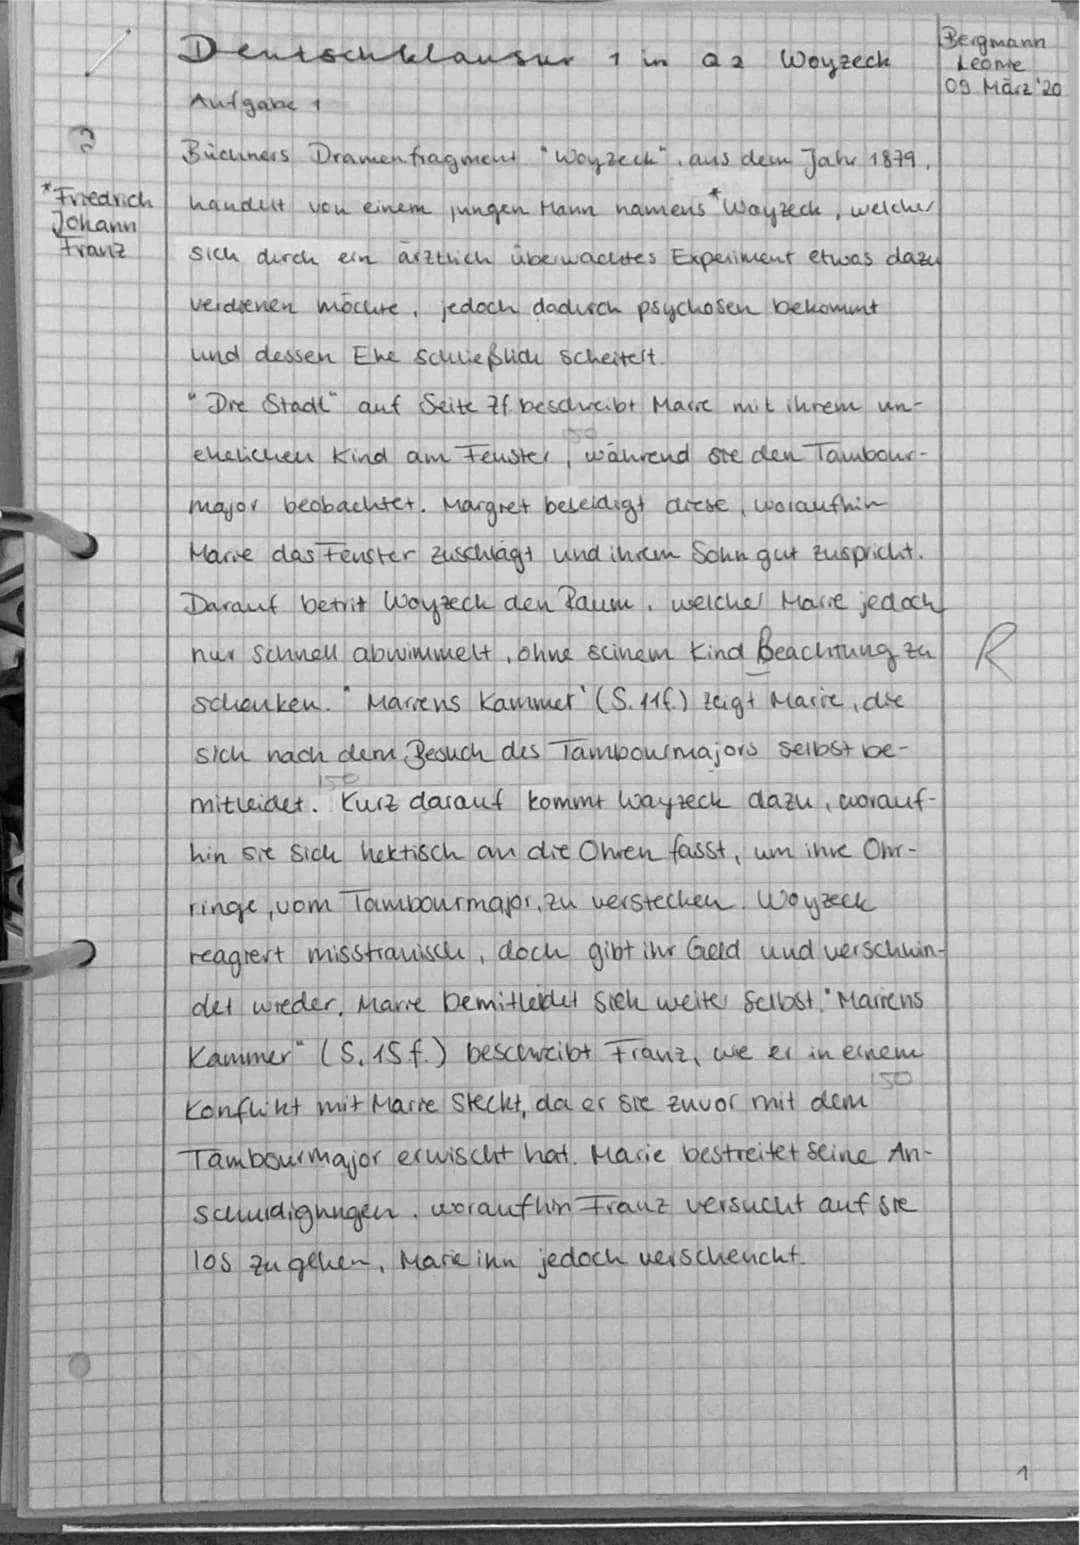 Deutschklausur 1 in Q2 Woyzeck
Bergmann
Leonie
09. März '20
Aufgabe 1
Büchners Dramenfragment "Woyzeck", aus dem Jahr 1879,
*Friedrich
Johann
Franz
handelt von einem jungen Mann namens *Woyzeck, welcher
sich durch ein ärztlich überwachtes Experiment etwas dazu
verdienen möchte, jedoch dadurch psychosen bekommt
und dessen Ehe schließlich scheitert.
"Die Stadt" auf Seite 7f. beschreibt Marie mit ihrem un-
150
ehelichen Kind am Fenster, während sie den Tambour-
major beobachtet. Margret beleidigt diese, woraufhin
Marie das Fenster zuschlägt und ihrem Sohn gut zuspricht.
Darauf betrit Woyzeck den Raum, welcher Marie jedoch
nur schnell abwimmelt, ohne seinem Kind Beachtung zu
R
schenken. "Mariens Kammer" (S. 11f.) zeigt Marie, die
sich nach dem Besuch des Tambourmajors selbst be-
150
mitleidet. Kurz darauf kommt Woyzeck dazu, worauf-
hin sie sich hektisch an die Ohren fasst, um ihre Ohr-
ringe, vom Tambourmajor, zu verstecken. Woyzeck
reagiert misstrauisch, doch gibt ihr Geld und verschwin-
det wieder. Marie bemitleidet sich weiter selbst. "Mariens
Kammer" (S. 15f.) beschreibt Franz, wie er in einem
150
Konflikt mit Marie steckt, da er sie zuvor mit dem
Tambourmajor erwischt hat. Marie bestreitet seine An-
schuldigungen, woraufhin Franz versucht auf sie
los zu gehen, Marie ihn jedoch verscheucht.
1